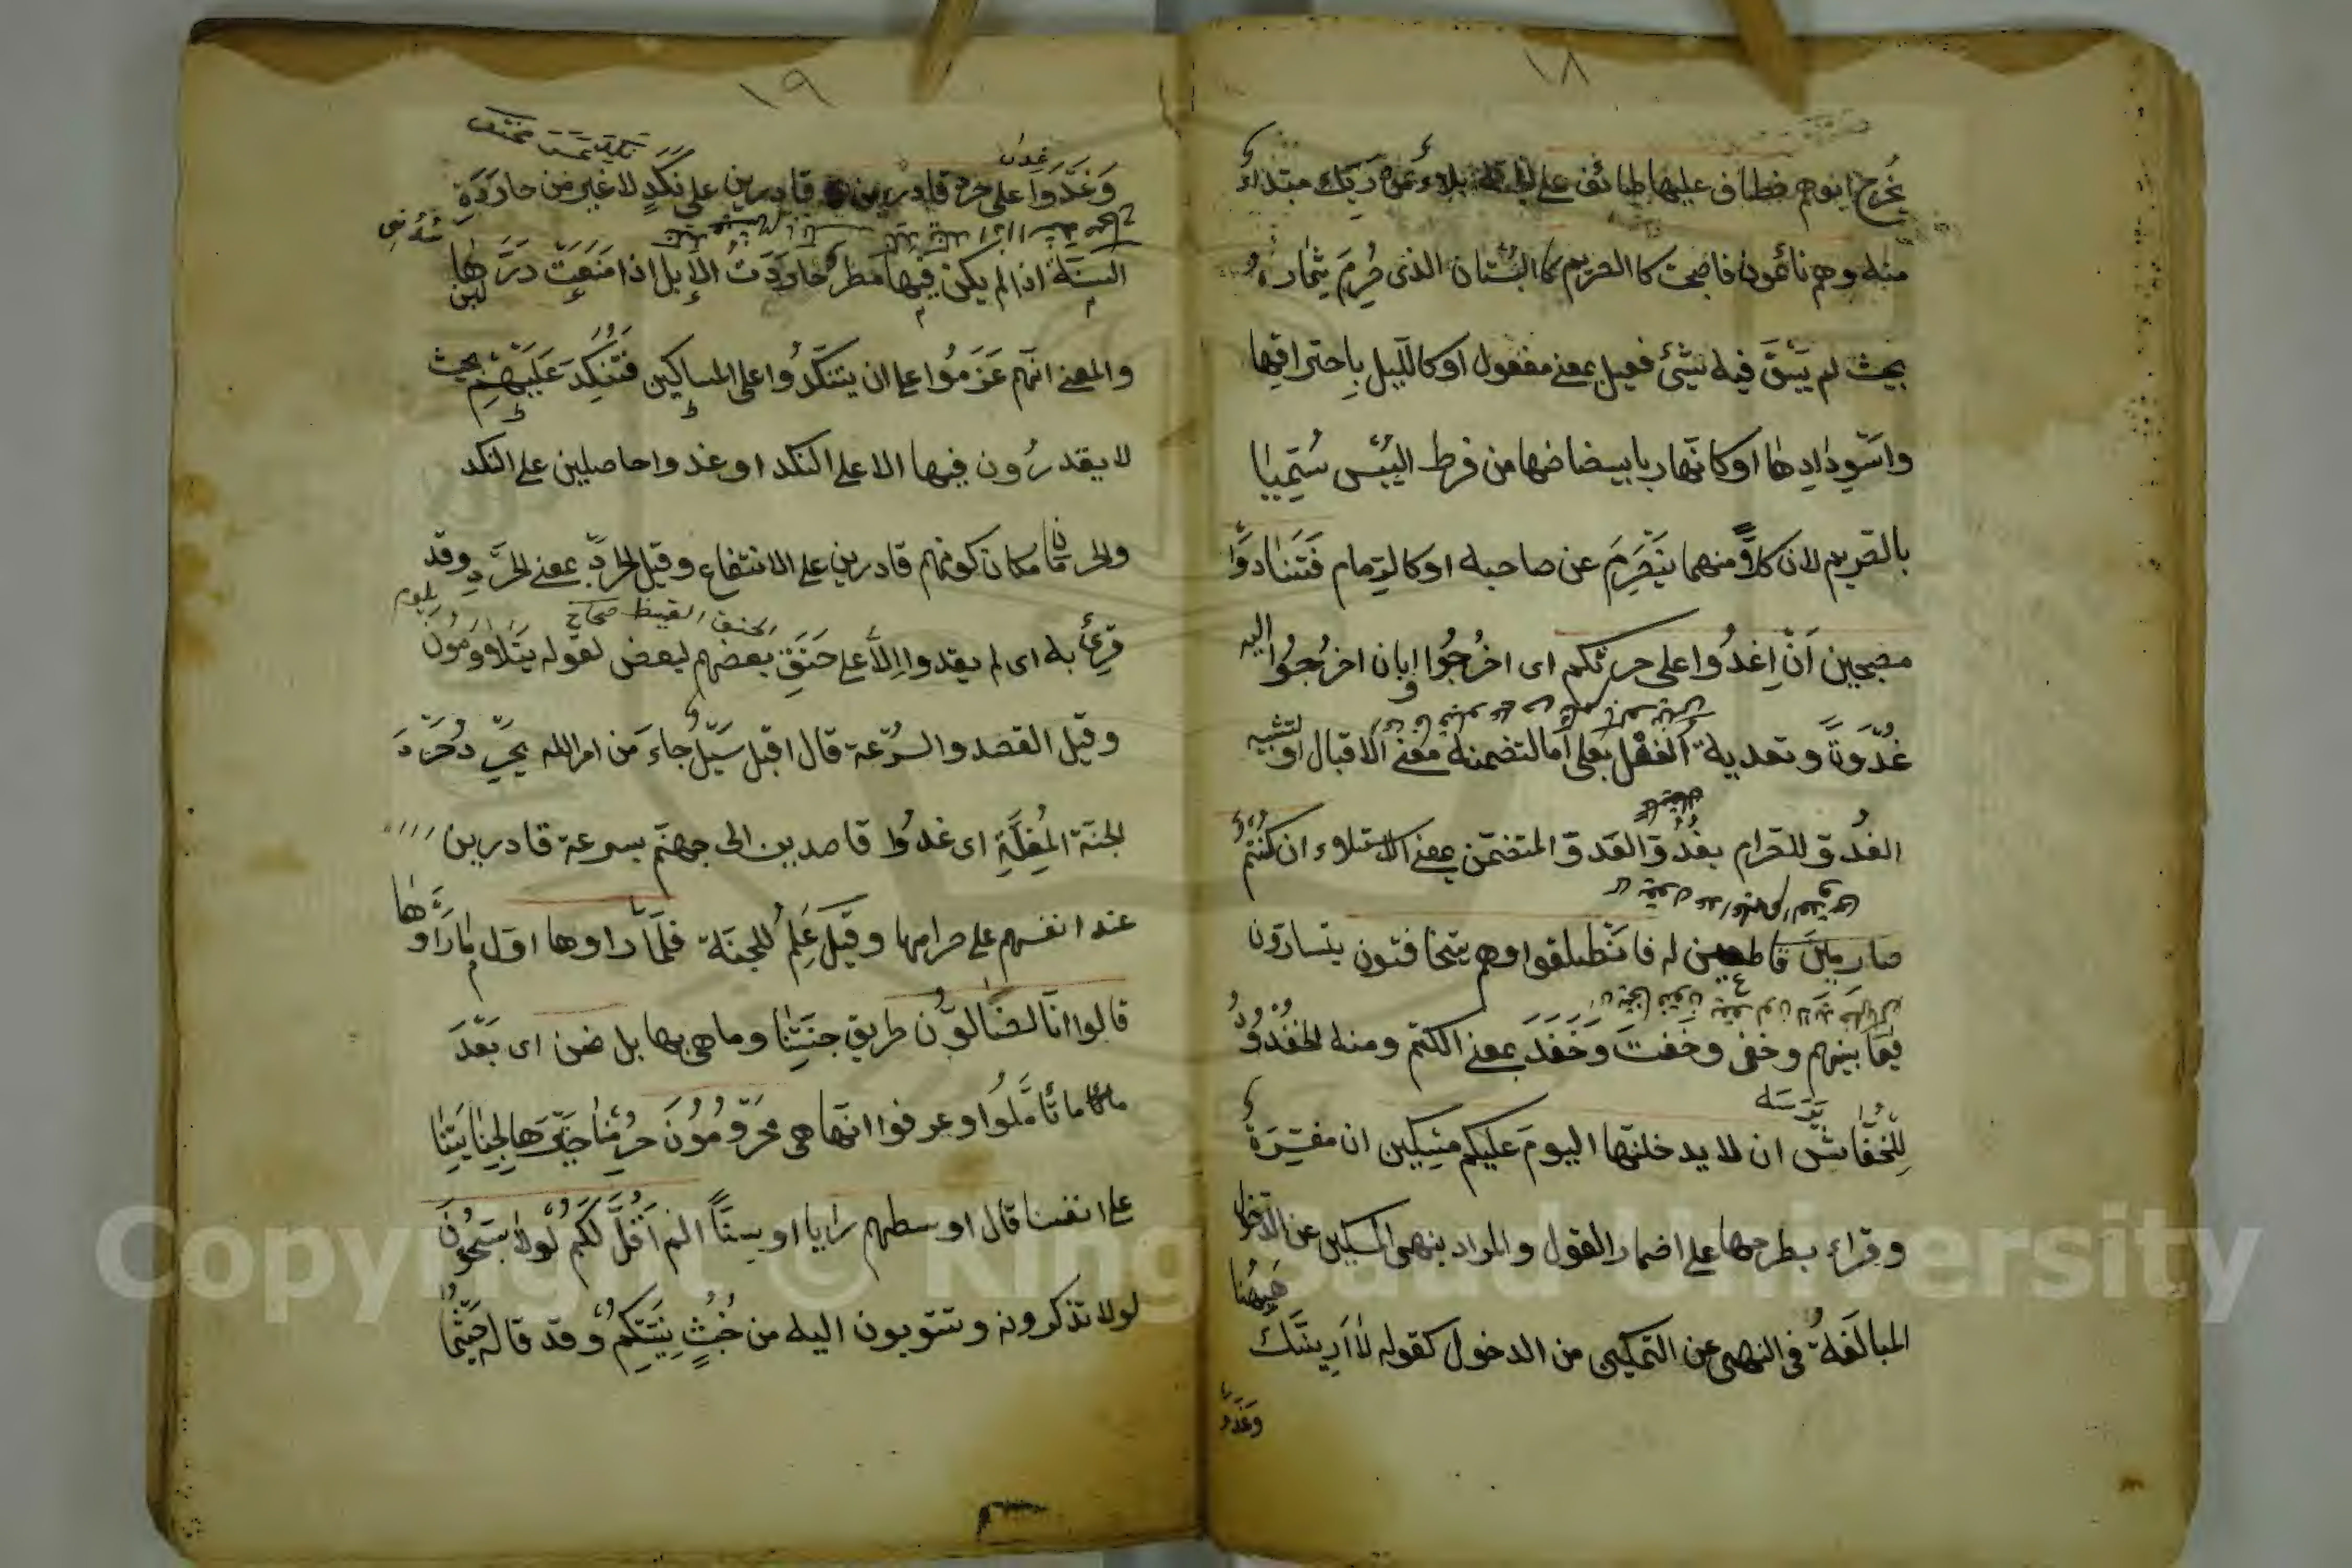 ١٨
يخرج ابوهم فطاف عليها طائف على الجنة بلاء من ربك مبتداء
منه وهم نائمون فاصبحت كالصريم كالبستان الذى صُرِمَ ثماره
بحيث لم يَبْقَ فيه شئ فعيل بمعنى مفعول او كالليل باحتراقها
واسودادها او كانهار بابيضاضها من فرط اليبس سُمّيا
بالصريم لان كلاً منهما ينصرم عن صاحبه او كالرمام فتنادوا
مصبحين ان اغدوا على حرثكم اى اخرجوا او بان اخرجوا اليه
غدوة وتعدية الفعل بعلى اما لتضمنه معنى الاقبال او لتشبيه
الغدو للصرام بغدو العدو المتضمن بمعنى الاستلاء ان كنتم
صارمين قاطعين له فانطلقوا وهم يتخافتون يتسارّون
فيما بينهم وخفى وخفت وخفد بمعنى الكتم ومنه الخفدود
للخفاش ان لا يدخلنها اليوم عليكم مسكين ان مفسرة
وقراء بطرحها على اضمار القول والمراد بنهى المسكين عن الدخول
المبالغة فى النهى عن التمكين من الدخول كقوله لا ارينك
هيهنا
وغدوا
١٩
وغدوا على حرد قادرين قادرين على نكد لا غير من حاردة
السنة اذا لم يكن فيها مطر وحاردت الابل اذا منعت درها
لبن
والمعنى انهم عزموا على ان يتنكدوا على المساكين فتنكد عليهم بحيث
لا يقدرون فيها الا على النكد او غدوا حاصلين على النكد
والحرمان مكان كونهم قادرين على الانتفاع وقيل الحرد بمعنى الحرد وقد
الحنق الغيظ صحاح
قرئ به اى لم يقدوا الا على حنق بعضهم لبعض لقوله يتلاومون
وقيل القصد والسرعة قال اقبل سيل جاء من امر الله يحرد حرد
الجنة المغلة اى غدوا قاصدين الى جهنم بسرعة قادرين
عند انفسهم على صرامها وقيل علم للجنة فلما راوها اول ما راوها
قالوا انا لضالون طريق جنتنا وما هى بها بل نحن اى بعد
ما تاملوا وعرفوا انها هى محرومون حرمنا خيرها لجنايتنا
على انفسنا قال اوسطهم رايا او سنًّا الم اقل لكم لولا تسبحون
لولا تذكرونه وتتوبون اليه من خبث نيتكم وقد قاله حيثما
Copyright © King Saud University